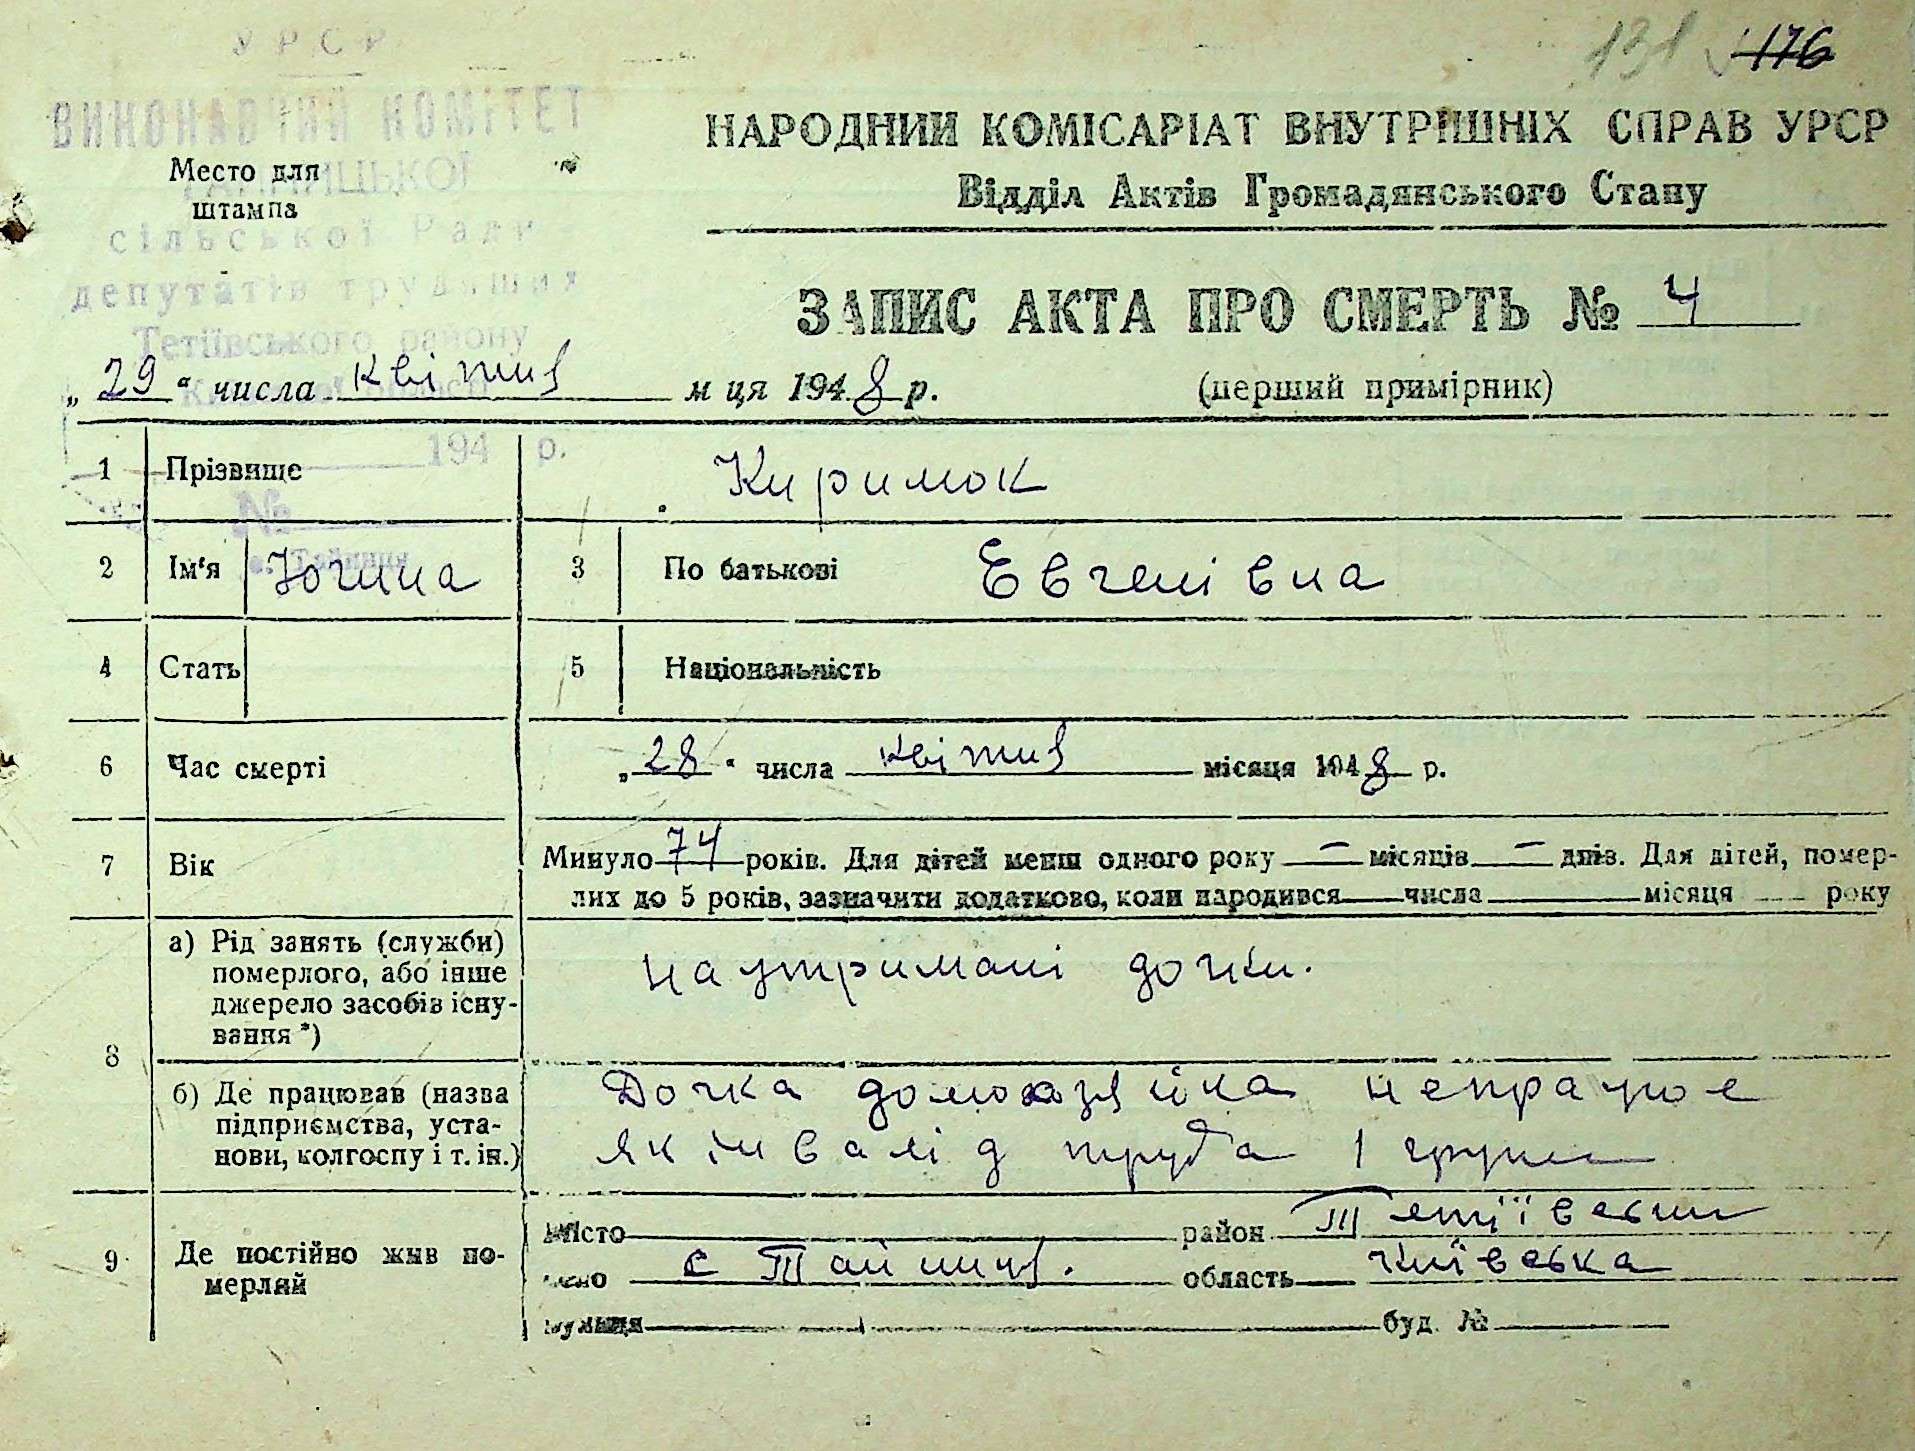 УРСР
131 176
ВИКОНАВЧИЙ КОМІТЕТ
НАРОДНИЙ КОМІСАРІАТ ВНУТРІШНІХ СПРАВ УРСР
Место для
штампа
Відділ Актів Громадянського Стану
сільської Ради
депутатів трудящих
Тетіївського району
ЗАПИС АКТА ПРО СМЕРТЬ № 4
„29“ числа квітня м ця 1948 р.
(перший примірник)
194 р.
№
1 Прізвище Киримок
2 Ім'я Югина 3 По батькові Евгенівна
4 Стать 5 Національність
6 Час смерті „28“ числа квітня місяця 1948 р.
7 Вік Минуло 74 років. Для дітей менш одного року — місяців — днів. Для дітей, помер-
лих до 5 років, зазначити додатково, коли народився числа місяця року
8 а) Рід занять (служби) померлого, або інше джерело засобів існу-вання *) на утримані дочки.
б) Де працював (назва підприємства, уста-нови, колгоспу і т. ін.) Дочка домохазяйка непрацює
як інвалід труда 1 групи
9 Де постійно жив по-мерлий
Місто район Тетіївський
с Тайниця. область Київська
вулиця буд. №